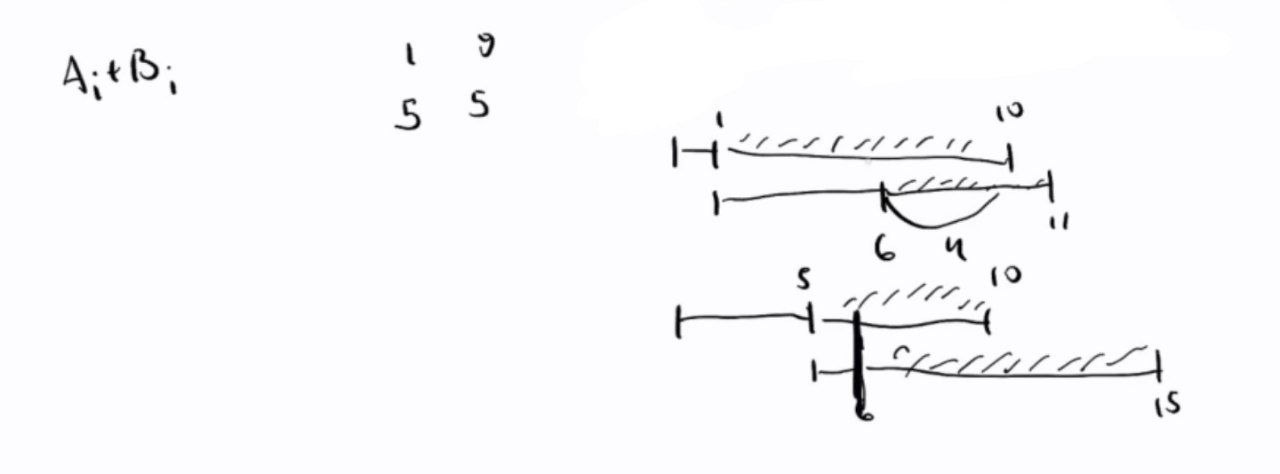 A_i+B_i
1 9
5 5
1 10
6 4 11
5 10
6 15